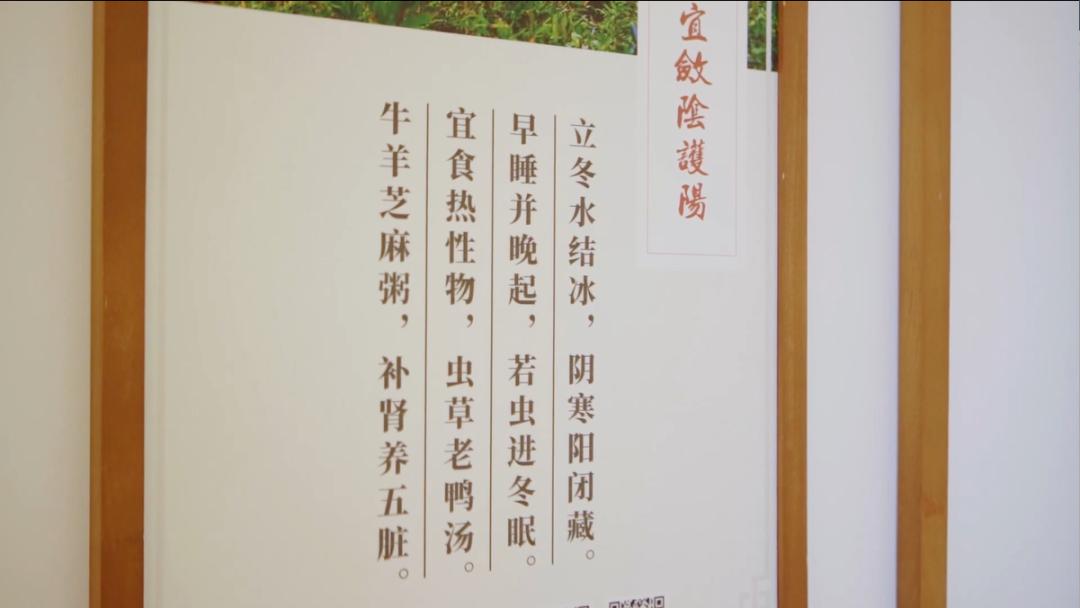 宜斂陰護陽
立冬水结冰，阴寒阳闭藏。
早睡并晚起，若虫进冬眠。
宜食热性物，虫草老鸭汤。
牛羊芝麻粥，补肾养五脏。